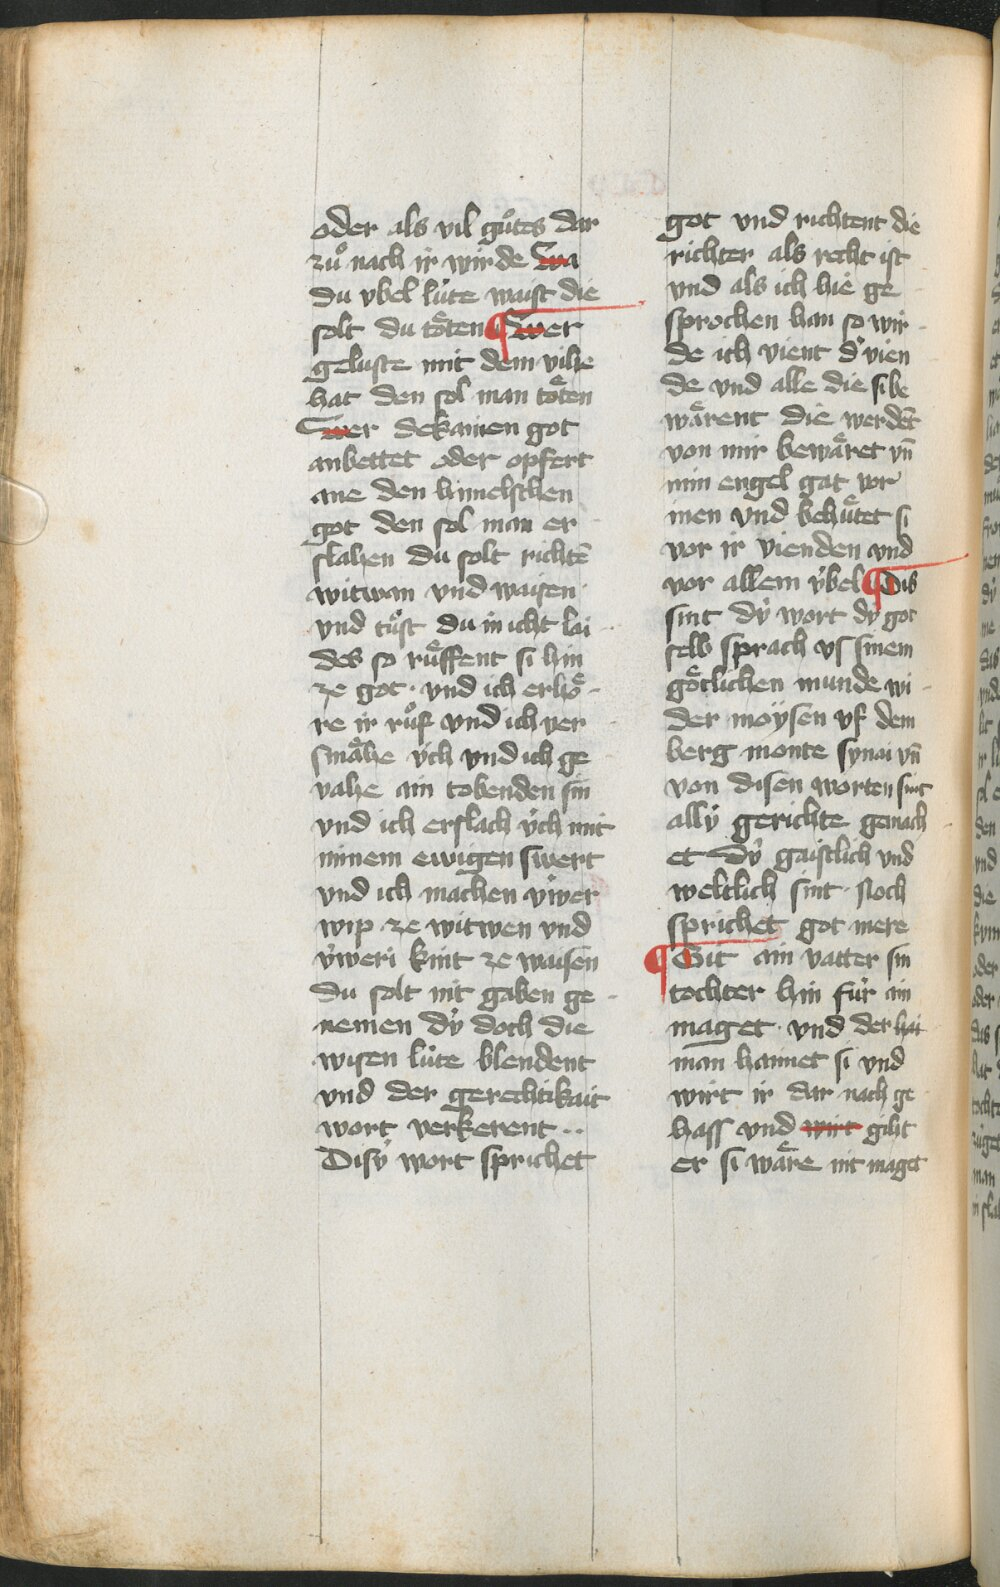 oder als vil guͦtes dar
zuͦ nach ir wirde Wa
du vbel lúte waist die
solt du toͤten ¶ Swer
geluste mit dem vihe
hat den sol man toͤten
Swer dekainen got
anbettet oder opfert
ane den himelschen
got den sol man er
slahen du solt richtē
witwan vnd waisen
vnd tuͦst du in icht lai
des so ruͤffent si hin
ze got · vnd ich erhoͤ-
re ir ruͦf vnd ich ver
smaͤhe v́ch vnd ich ge
vahe ain tobenden sin
vnd ich erslach v́ch mit
minem ewigen swert
vnd ich machen v́wer
wip ze witwen vnd
v́weri kint ze waisen
du solt nit gaben ge-
nemen dý doch die
wisen lúte blendent
vnd der gerechtikait
wort verkerent ··
Disý wort sprichet
got vnd richtent die
richter als recht ist
vnd als ich hie ge-
sprochen han so wir-
de ich vient d͛ vien
de vnd alle die si be
waͤrent die werdēt
von mir bewaͤret vn̄
min engel gat vor
inen vnd behuͤtet si
vor ir vienden vnd
vor allem v́bel ¶ Dis
sint dý wort dý got
selb sprach vs sinem
goͤtlichen munde wi-
der moýsen vf dem
berg monte synai vn̄
von disen worten sint
allý gerichte gemach-
et dý gaistlich vnd
weltlich sint · Noch
sprichet got mere
¶ Git ain vatter sin
tochter hin fúr ain
maget · vnd der hai-
man haimet si vnd
wirt ir dar nach ge
hass vnd wirt giht
er si waͤre nit maget